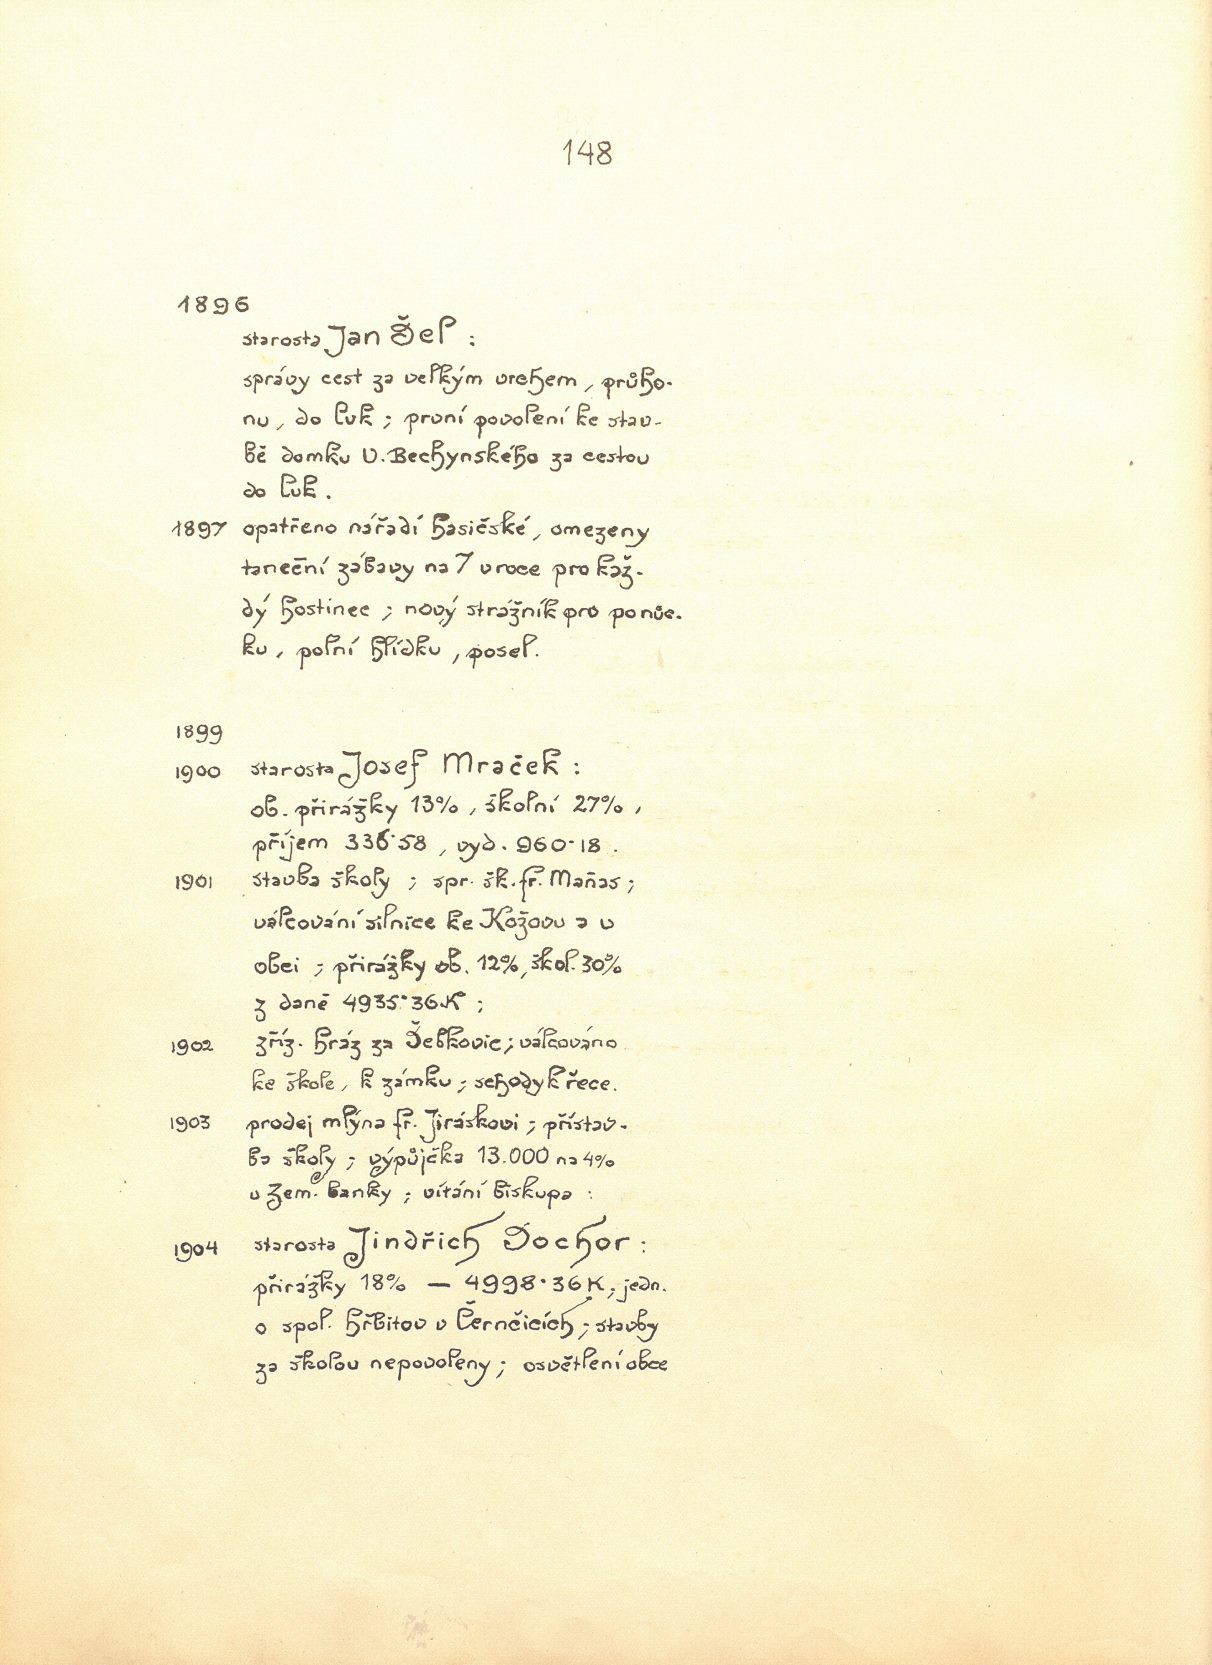 148
1896
starosta Jan Šel :
správy cest za velkým vrchem, průho-
nu, do luk ; první povolení ke stav-
bě domku V. Bechynského za cestou
do luk.
1897 opatřeno nářadí hasičské, omezeny
taneční zábavy na 7 v roce pro kaž-
dý hostinec ; nový strážník pro ponůc-
ku, polní hlídku, posel.
1899
1900 starosta Josef Mraček :
ob. přirážky 13%, školní 27%,
příjem 336·58, vyd. 960·18.
1901 stavba školy ; spr. šk. fr. Maňas ;
válcování silnice ke Kožovu a v
obci ; přirážky ob. 12%, škol. 30%
z daně 4935·36 K ;
1902 zříz. hráz za Šebkovic ; válcováno
ke škole, k zámku ; schody k řece.
1903 prodej mlýna fr. Jiráskovi ; přístav-
ba školy ; výpůjčka 13.000 na 4%
u Zem. banky ; vítání biskupa :
1904 starosta Jindřich Dochor :
přirážky 18% — 4998·36 K ; jedn.
o spol. hřbitov v Černčicích ; stavby
za školou nepovoleny ; osvětlení obce